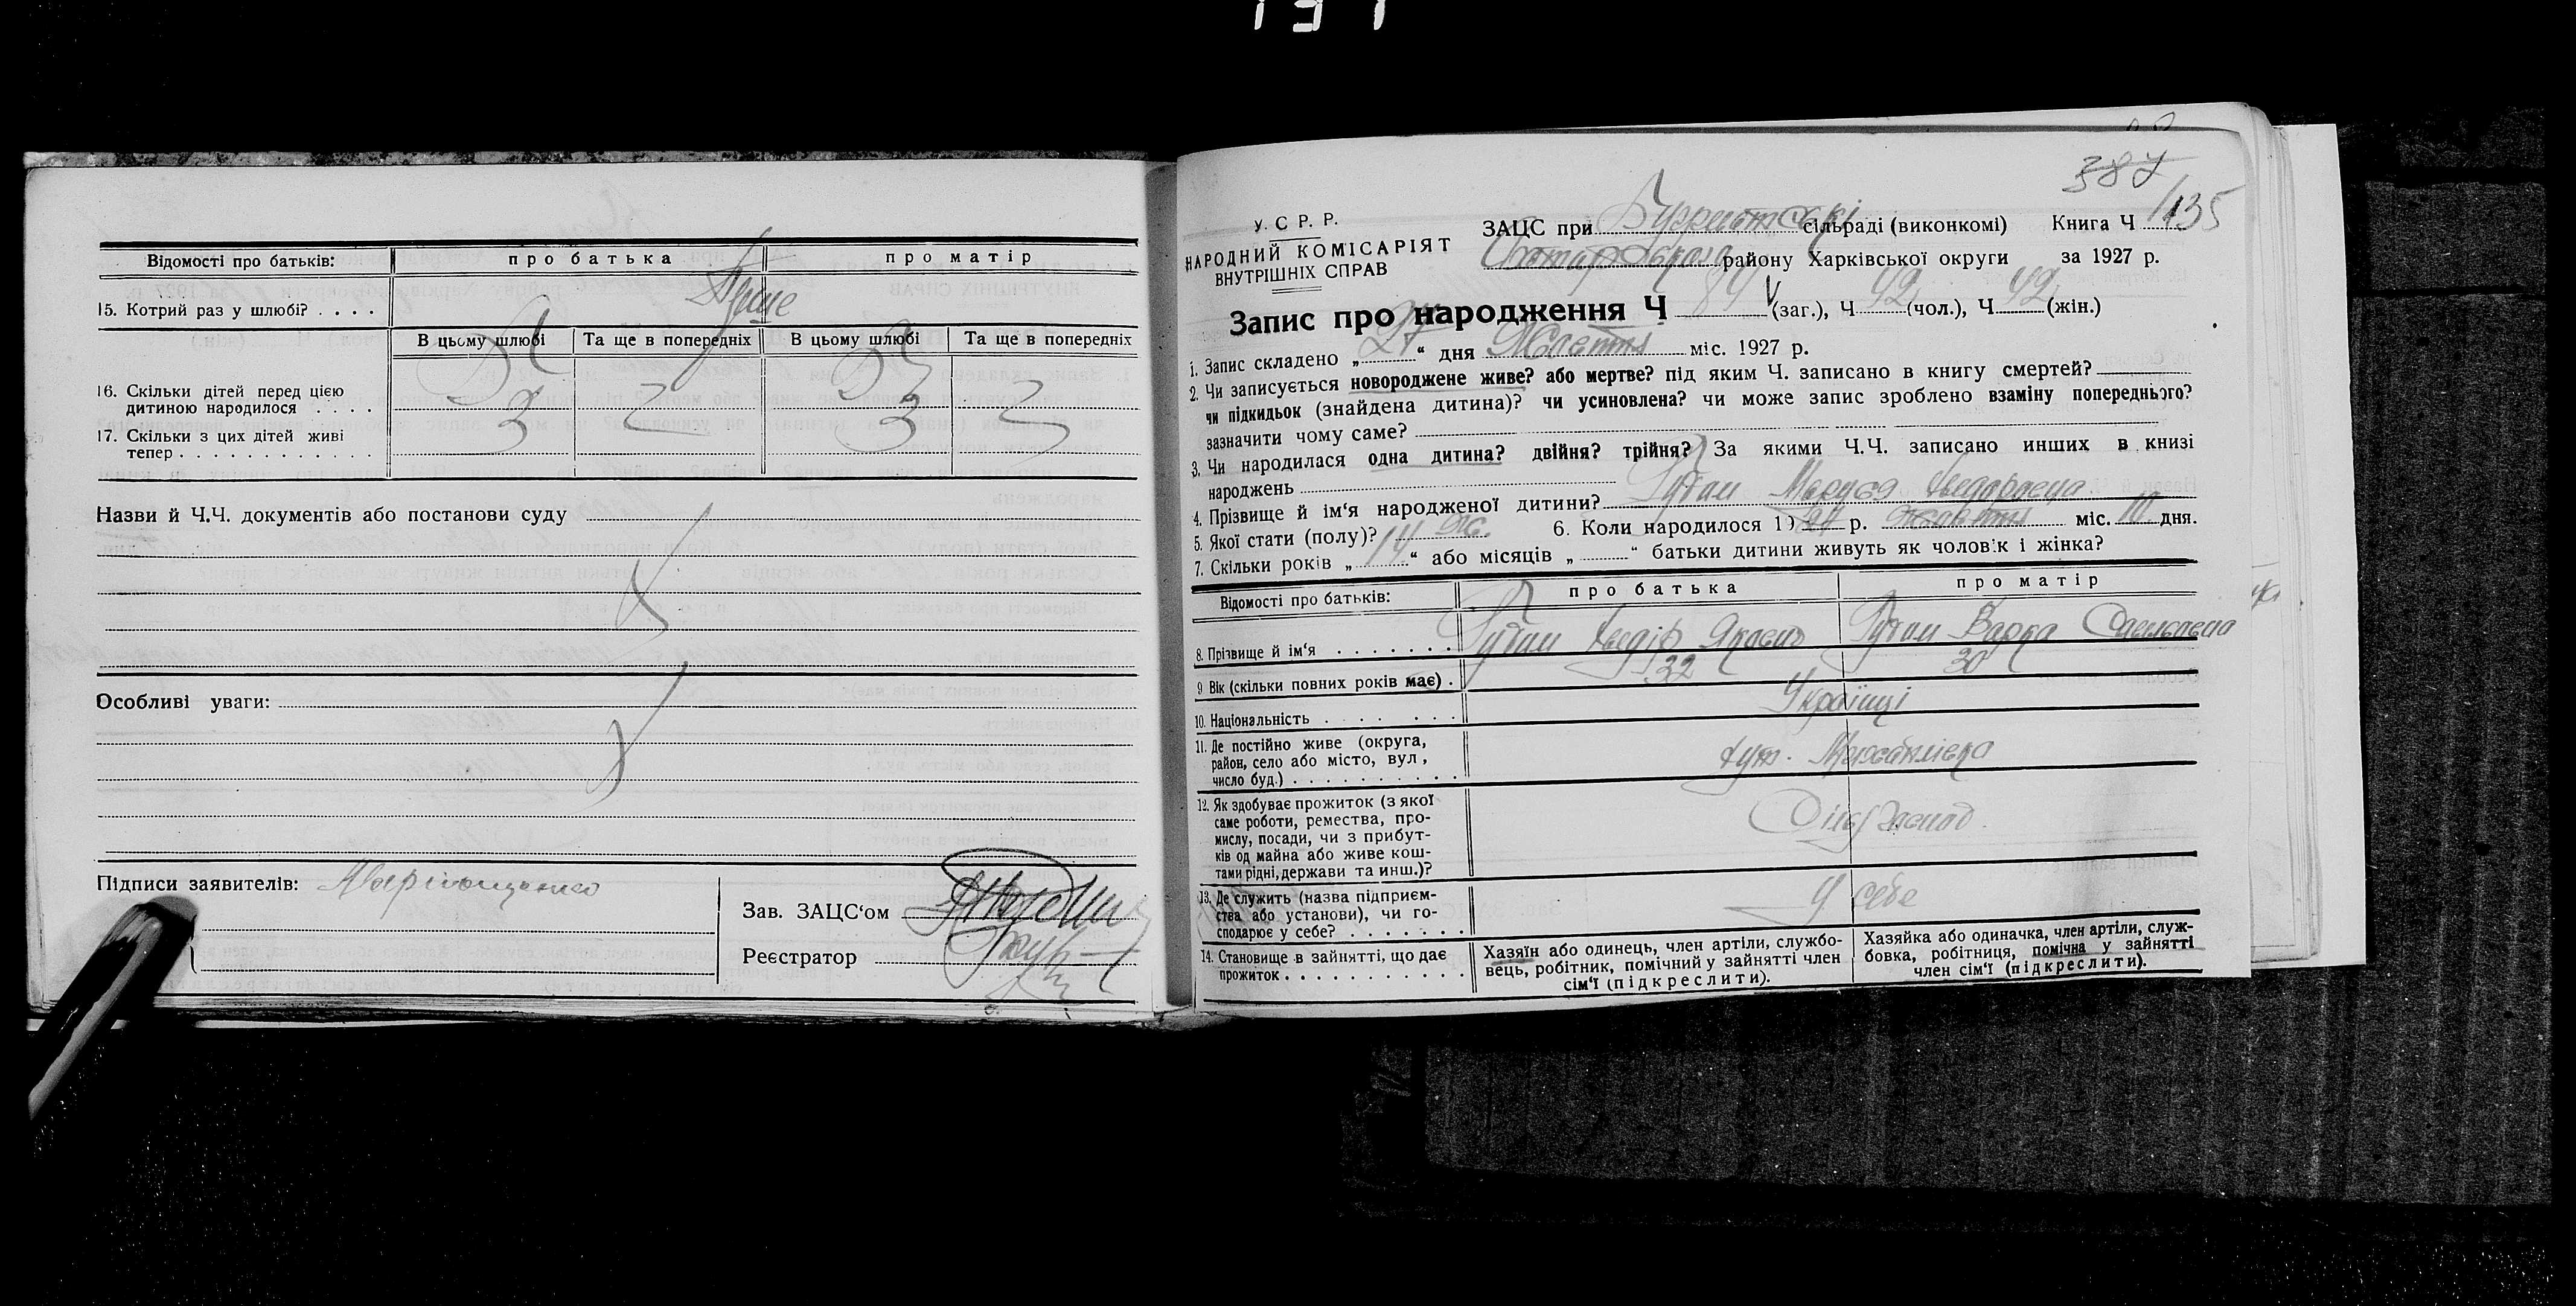 Відомості про батьків: про батька про матір
15. Котрий раз у шлюбі? . . . .
В цьому шлюбі Та ще в попередніх В цьому шлюбі Та ще в попередніх
16. Скільки дітей перед цією
дитиною народилося . . . .
3 3
17. Скільки з цих дітей живі
тепер . . . . . . . . . . . .
Назви й Ч.Ч. документів або постанови суду
Особливі уваги:
Підписи заявителів:
Зав. ЗАЦС‘ом
Реєстратор
387
135
У. С Р. Р.
НАРОДНИЙ КОМІСАРІЯТ
ВНУТРІШНІХ СПРАВ
ЗАЦС при сільраді (виконкомі) Книга Ч
району Харківської округи за 1927 р.
Запис про народження Ч 84 (заг.), Ч 42 (чол.), Ч 42 (жін.)
1. Запис складено „ 27 “ дня Жовтня міс. 1927 р.
2. Чи записується новороджене живе? або мертве? під яким Ч. записано в книгу смертей?
чи підкидьок (знайдена дитина)? чи усиновлена? чи може запис зроблено взаміну попереднього?
зазначити чому саме?
3. Чи народилася одна дитина? двійня? трійня? За якими Ч.Ч. записано инших в книзі
народжень
4. Прізвище й ім‘я народженої дитини? Маруся Хведоровна
5. Якої стати (полу)? ж. 6. Коли народилося 19 27 р. жовтня міс. 10 дня.
7. Скільки років „ 14 “ або місяців „ “ батьки дитини живуть як чоловік і жінка?
Відомості про батьків: про батька про матір
8. Прізвище й ім‘я . . . . . . . Хведір Яковив Варка Савеловна
9 Вік (скільки повних років має) . 32 30
10. Національність . . . . . . . Українці
11. Де постійно живе (округа,
район, село або місто, вул,
число буд.) . . . . . . . . . .
хут. Михайлівка
12. Як здобуває прожиток (з якої
саме роботи, ремества, про-
мислу, посади, чи з прибут-
ків од майна або живе кош-
тами рідні, держави та инш.)?
13. Де служить (назва підприєм-
ства або установи), чи го-
сподарює у себе? . . . . . . .
У себе
14. Становище в зайнятті, що дає
прожиток . . . . . . . . . . .
Хазяїн або одинець, член артіли, службо-
вець, робітник, помічний у зайнятті член
сім‘ї (підкреслити).
Хазяйка або одиначка, член артіли, служ-
бовка, робітниця, помічна у зайнятті
член сім‘ї (підкреслити).